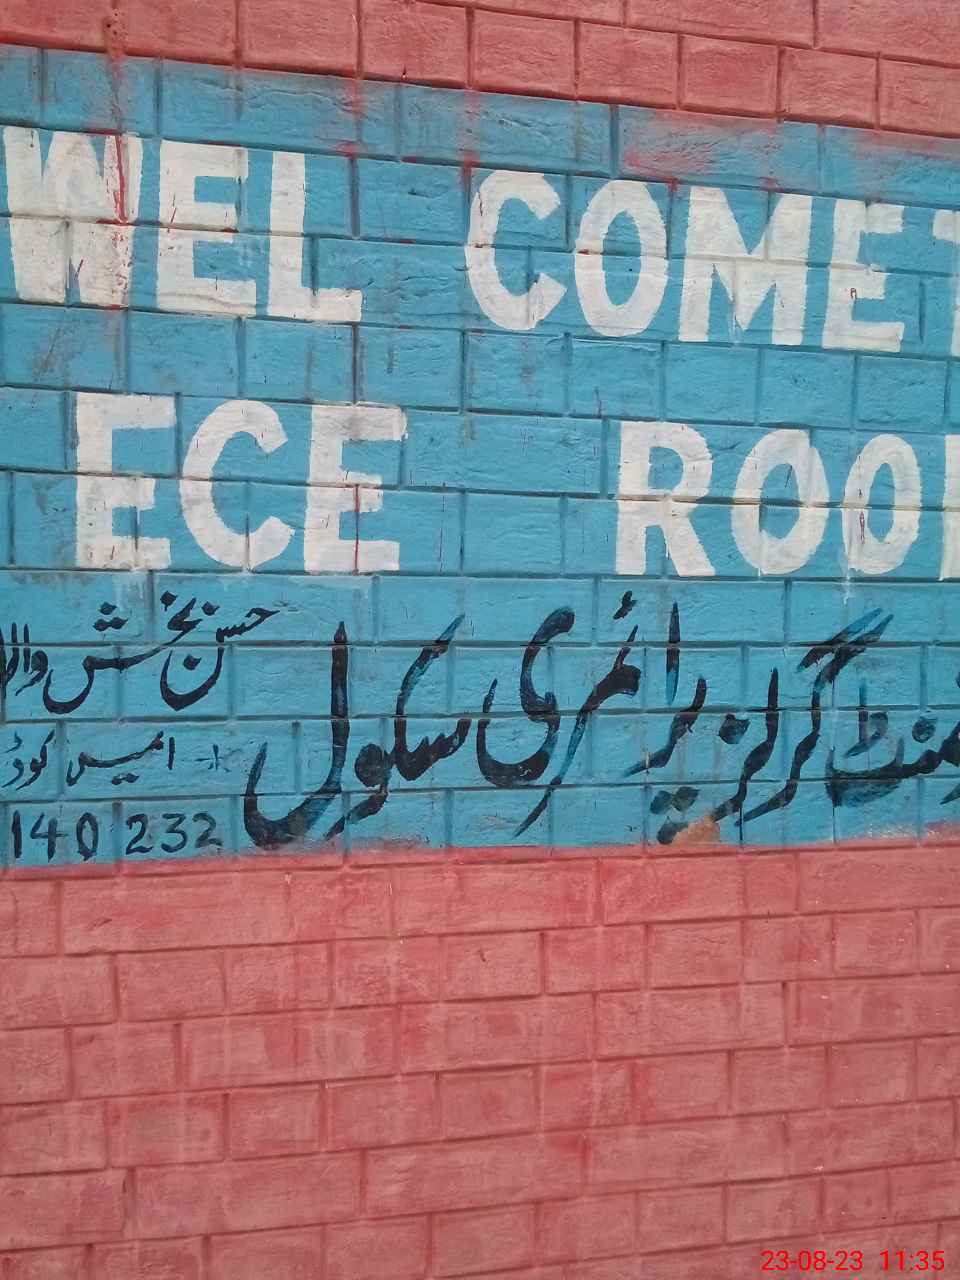 WEL COME T
ECE ROO
منٹ گرلز پرائمری سکول حسن بخش وال
ایمیس کوڈ
140 232
23-08-23 11:35